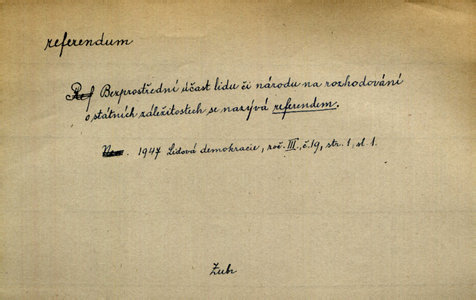 referendum
Bezprostřední účast lidu či národu na rozhodování
o státních záležitostech se nazývá referendem.
1947 Lidová demokracie, roč. III, č. 19, str. 1, sl. 1.
Zub